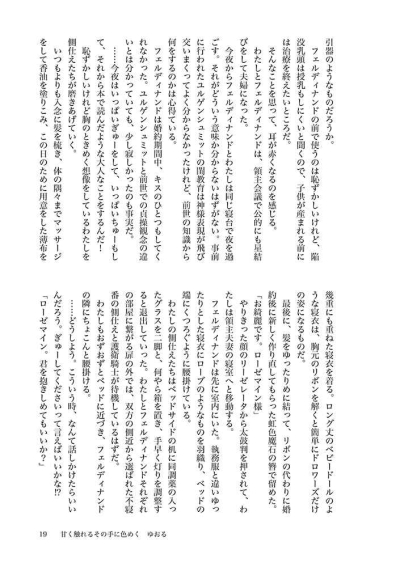 引器のようなものだろうか。
　フェルディナンドの前で使うのは恥ずかしいけれど、陥
没乳頭は授乳もしにくいと聞くので、子供が産まれる前に
は治療を終えたいところだ。
　そんなことを思って、耳が赤くなるのを感じる。
　わたしとフェルディナンドは、領主会議で公的にも星結
びをして夫婦になった。
　今夜からフェルディナンドとわたしは同じ寝台で夜を過
ごす。それがどういう意味か分からないはずがない。事前
に行われたユルゲンシュミットの閨教育は神様表現が飛び
交いまくってよく分からなかったけれど、前世の知識から
何をするのかは心得ている。
　フェルディナンドは婚約期間中、キスのひとつもしてく
れなかった。ユルゲンシュミットと前世での貞操観念の違
いとは分かっていても、少し寂しかったのも事実だ。
　……今夜はいっぱいぎゅーをして、いっぱいちゅーもし
て、それから本で読んだような大人なことをするんだ！
　恥ずかしいけれど胸のときめく想像をしているわたしを
側仕えたちが磨きあげていく。
　いつもよりも入念に髪を梳き、体の隅々までマッサージ
をして香油を塗りこみ、この日のために用意をした薄布を
幾重にも重ねた寝衣を着る。ロング丈のベビードールのよ
うな寝衣は、胸元のリボンを解くと簡単にドロワーズだけ
の姿になるものだ。
　最後に、髪をゆったりめに結って、リボンの代わりに婚
約後に新しく作り直してもらった虹色魔石の簪で留めた。
「お綺麗です。ローゼマイン様」
　やりきった顔のリーゼレータから太鼓判を押されて、わ
たしは領主夫妻の寝室へと移動する。
　フェルディナンドは先に室内にいた。執務服と違いゆっ
たりとした寝衣にローブのようなものを羽織り、ベッドの
端にくつろぐように腰掛けている。
　わたしの側仕えたちはベッドサイドの机に同調薬の入っ
たグラスを二脚と、何やら箱を置き、手早く灯りを調整す
ると退出していった。わたしとフェルディナンドそれぞれ
の部屋に繋がる扉の外では、双方の側近から選ばれた不寝
番の側仕えと護衛騎士が待機しているはずだ。
　わたしもおずおずとベッドに近づき、フェルディナンド
の隣にちょこんと腰掛ける。
　……どうしよう。こういう時、なんて話しかけたらいい
んだろう。ぎゅーしてくださいって言えばいいかな!?
「ローゼマイン。君を抱きしめてもいいか？」
19　甘く触れるその手に色めく　ゆおる